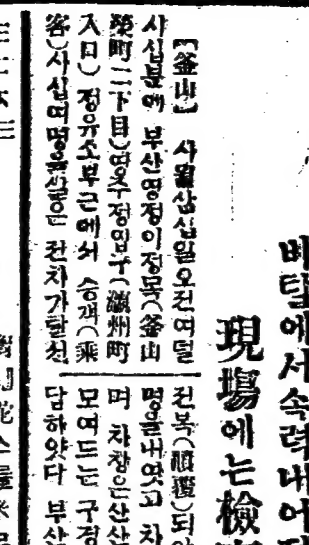 비탈에서속력내어
現場에는檢
【釜山】 사월삼십일오전여덜
사십분에 부산영정이정목(釜山
榮町二丁目)영주정입구(瀛州町
入口) 정유소부근에서 승객(乘
客)사십여명을실은 전차가탈선
전복(顚覆)되
명을내엿고 차
며 차창은산산
모여드는 구경
답하얏다 부산